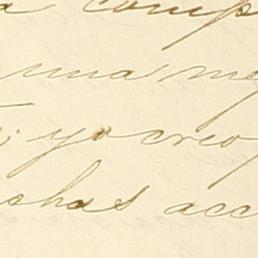 a comp
una me
; yo creo
chas acc